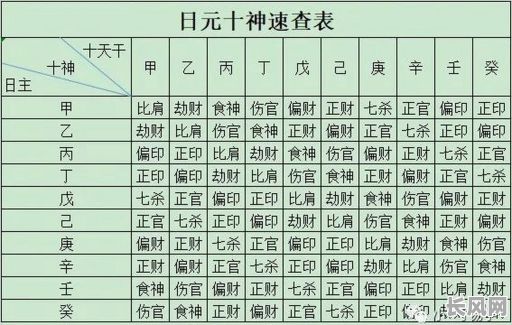 日元十神速查表
十天干
十神
日主
甲 乙 丙 丁 戊 己 庚 辛 壬 癸
甲 比肩 劫财 食神 伤官 偏财 正财 七杀 正官 偏印 正印
乙 劫财 比肩 伤官 食神 正财 偏财 正官 七杀 正印 偏印
丙 偏印 正印 比肩 劫财 食神 伤官 偏财 正财 七杀 正官
丁 正印 偏印 劫财 比肩 伤官 食神 正财 偏财 正官 七杀
戊 七杀 正官 偏印 正印 比肩 劫财 食神 伤官 偏财 正财
己 正官 七杀 正印 偏印 劫财 比肩 伤官 食神 正财 偏财
庚 偏财 正财 七杀 正官 偏印 正印 比肩 劫财 食神 伤官
辛 正财 偏财 正官 七杀 正印 偏印 劫财 比肩 伤官 食神
壬 食神 伤官 偏财 正财 七杀 正官 偏印 正印 比肩 劫财
癸 伤官 食神 正财 偏财 正官 七杀 正印 偏印
长风网